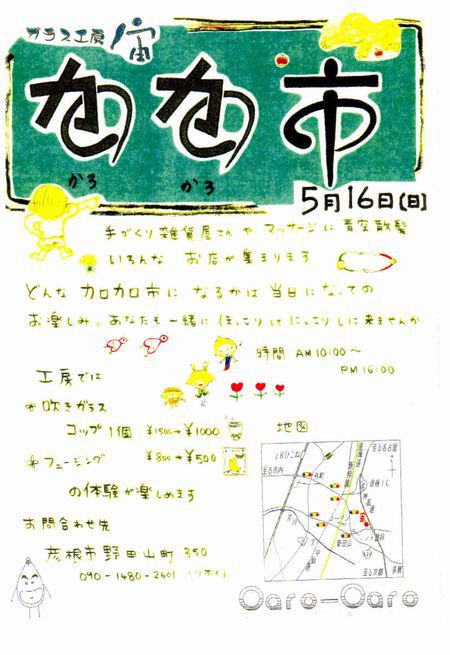 ガラス工房 宙
カロカロ市
かろ かろ
5月16日(日)
手づくり雑貨屋さんや マッサージに 青空散髪
いろんな お店が集まります
どんな カロカロ市に なるかは 当日になっての
お楽しみ。あなたも一緒に ほっこりして にっこりしに来ませんか
時間 AM10:00〜
PM16:00
工房では
吹きガラス
コップ1個 ¥1500→¥1000
フュージング ¥800→¥500
の体験が楽しめます
地図
お問合わせ先
彦根市野田山町 350
090-1480-2601 (ツボイ)
JRひこね
至る市内
至る名古屋
新幹線
彦根IC
名神高速
野田山
至る京都
多賀
Caro-Caro